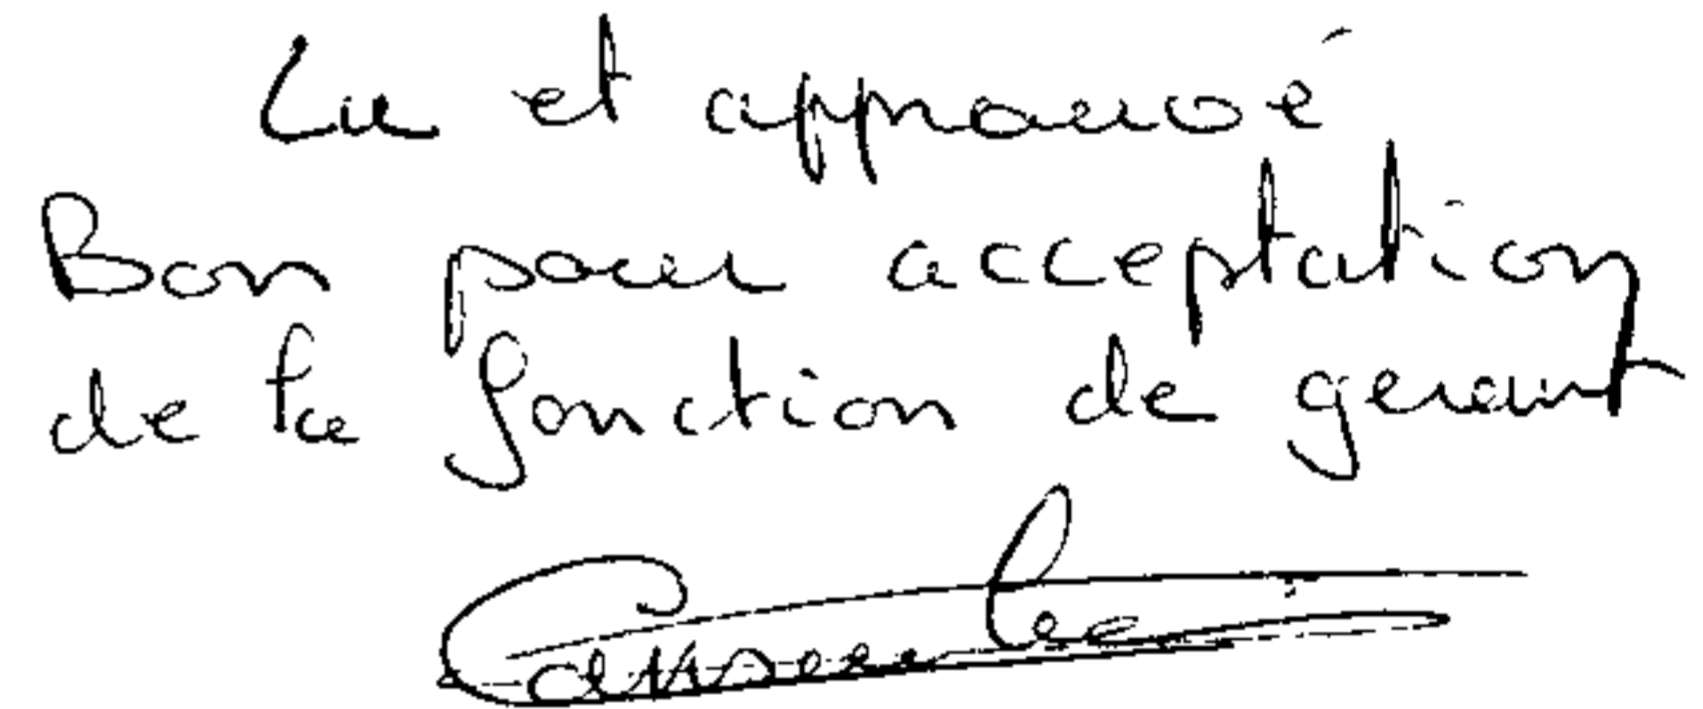 Lu et approuvé
Bon pour acceptation
de la fonction de gerant